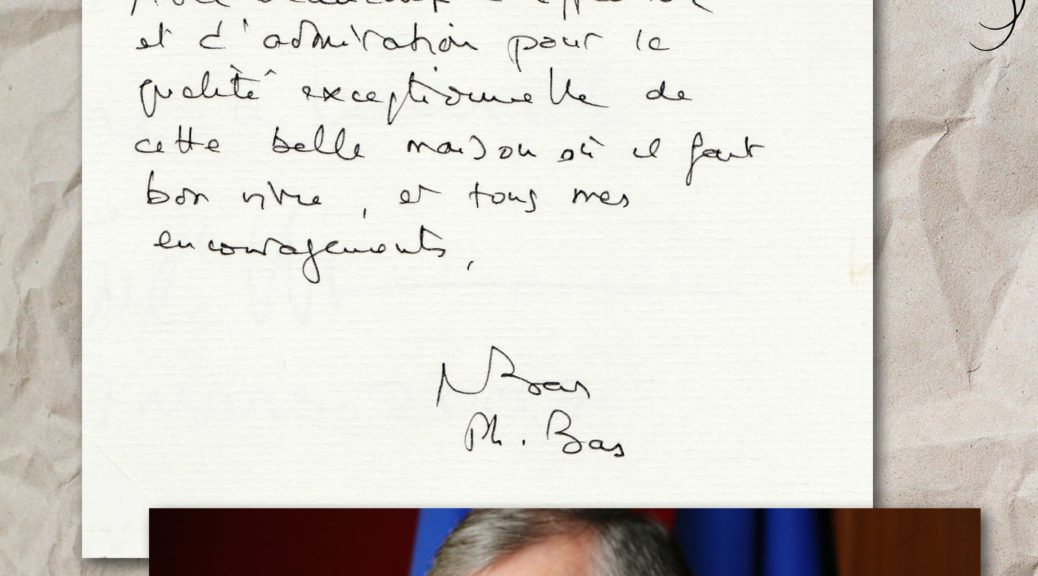 Avec beaucoup
et d'admiration pour la
qualité exceptionnelle de
cette belle maison où il fait
bon vivre, et tous mes
encouragements,
Bas
Ph. Bas